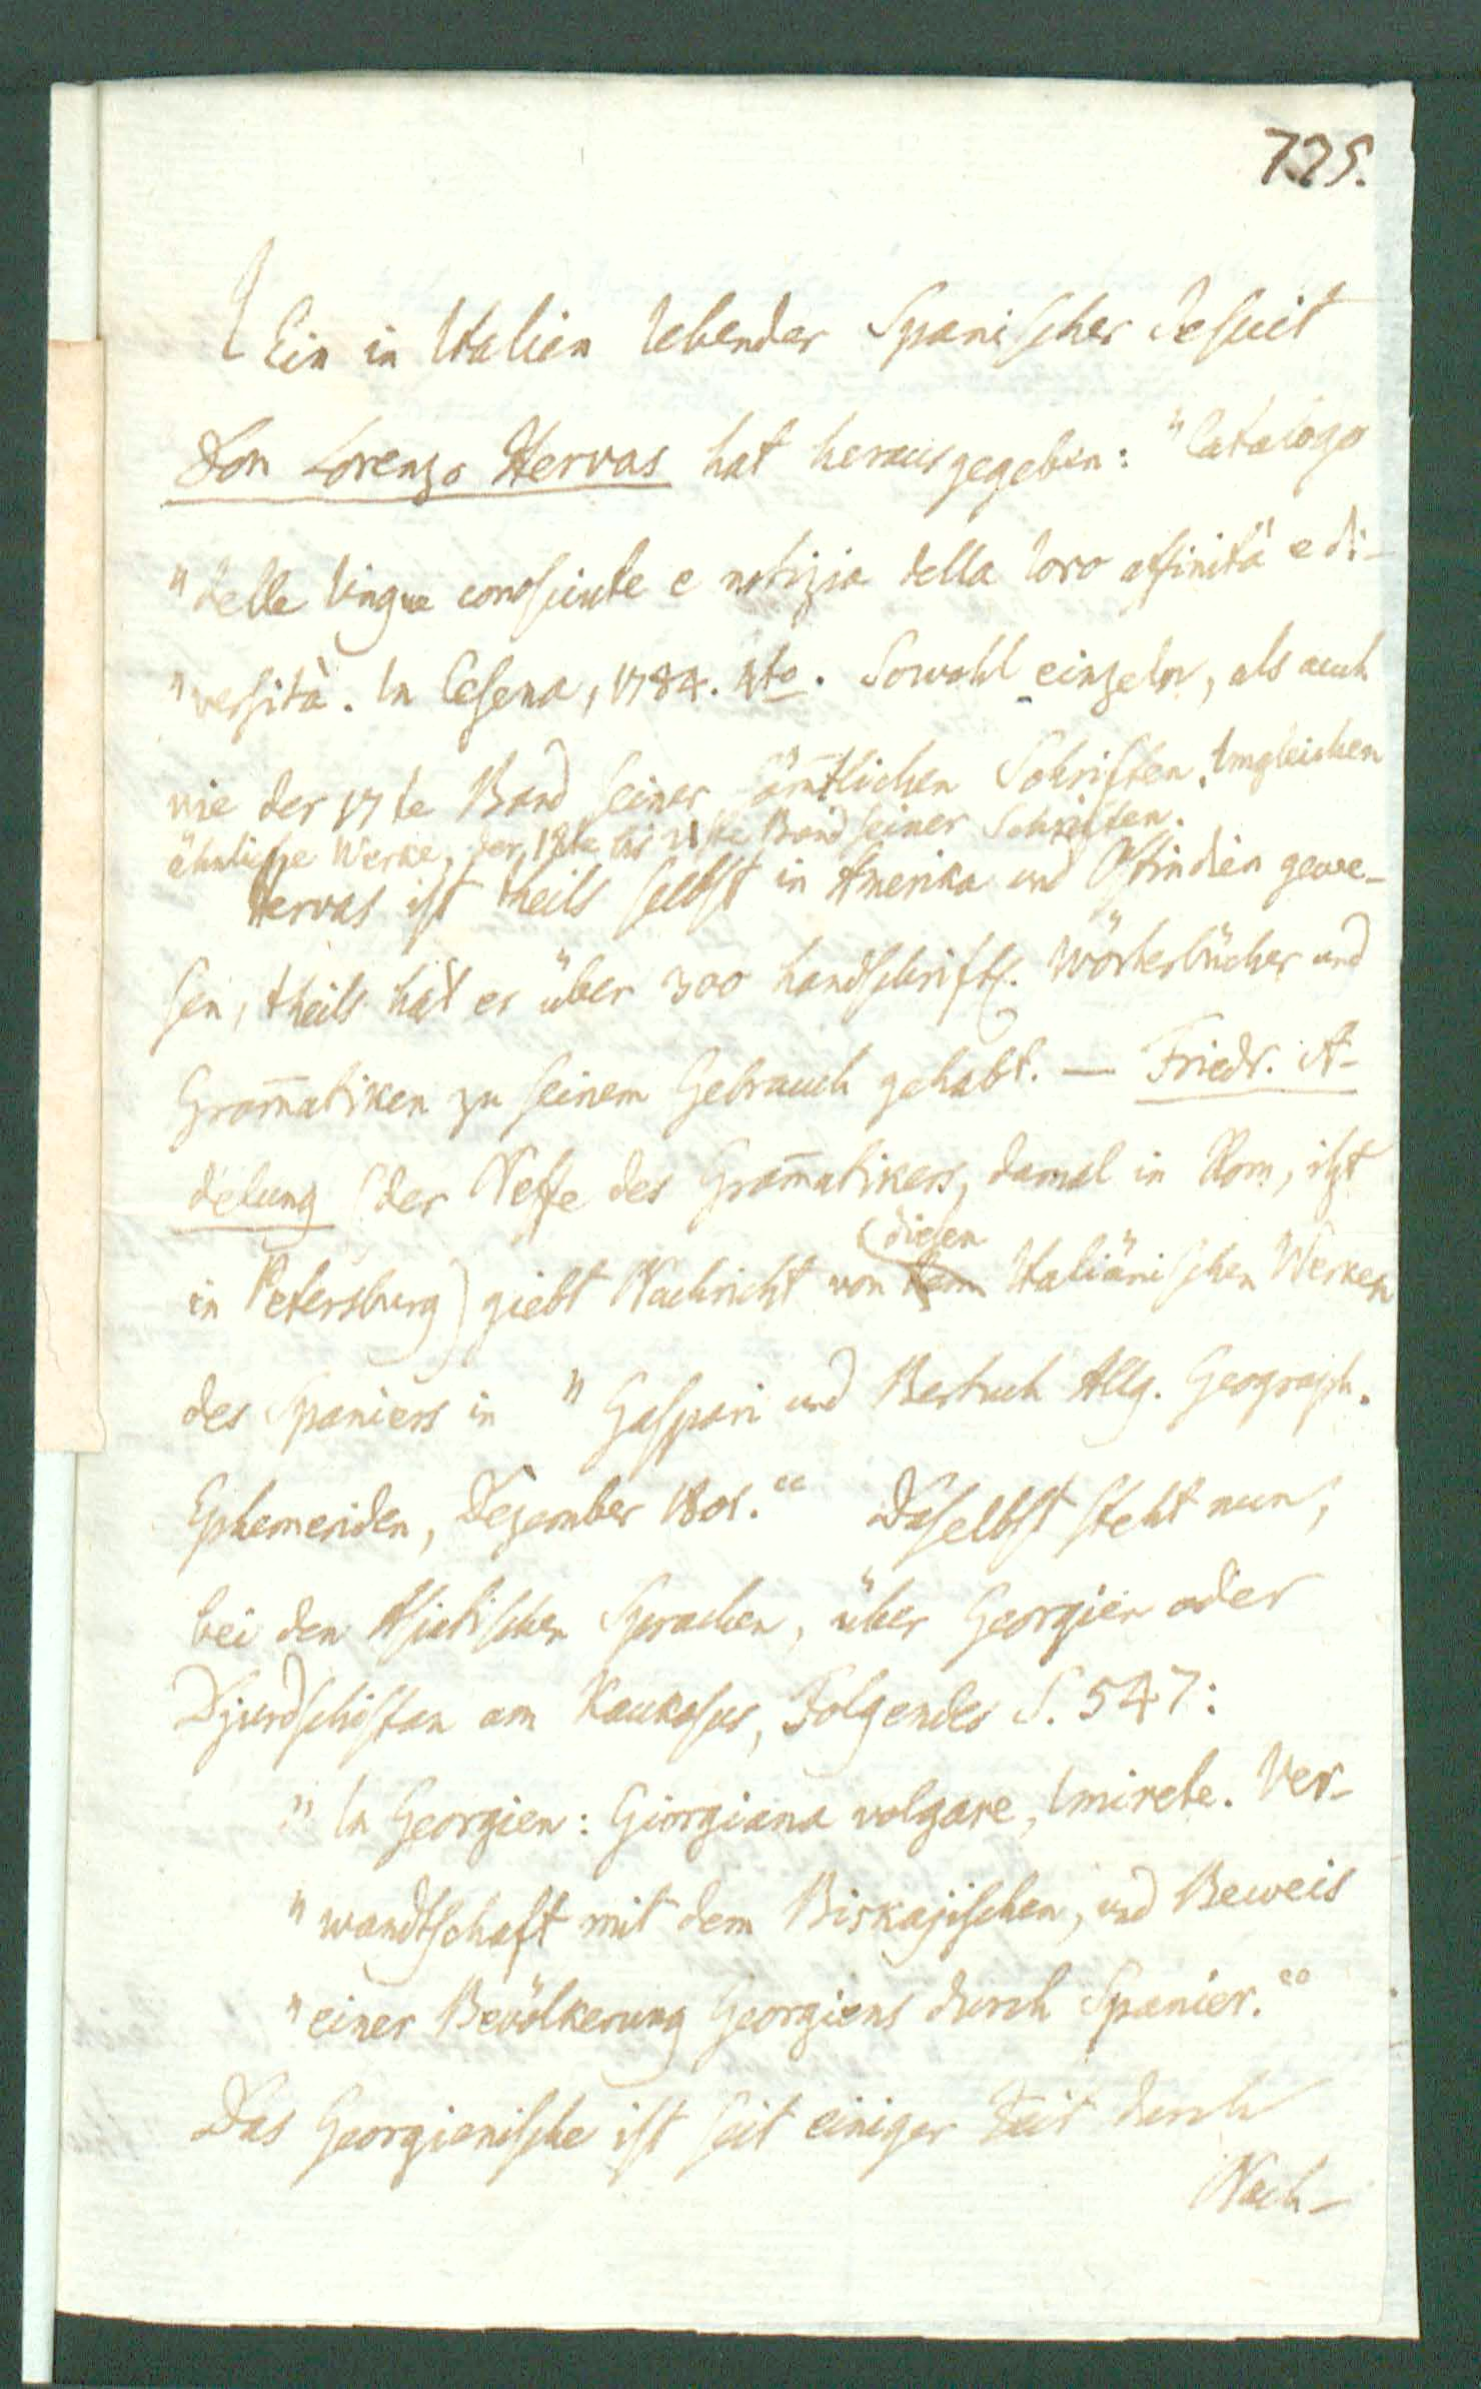 775.
Ein in Italien lebender Spanischer Jesuit
Don Lorenzo Hervas hat herausgegeben: "Catalogo
"delle lingue conosciute e notizia della loro affinità e di-
"versità. In Cesena, 1784. 4to. Sowohl einzeln, als auch
wie der 17te Band seiner sämtlichen Schriften. Imgleichen
ähnliche Werke, der 18te bis 21ste Band seiner Schriften.
Hervas ist theils selbst in Amerika und Ostindien gewe-
sen, theils hat er über 300 handschriftl. Wörterbücher und
Gram̄atiken zu seinem Gebrauch gehabt. — Friedr. A-
delung (der Neffe des Gram̄atikers, damal in Rom, itzt
in Petersburg) giebt Nachricht von diesen Italiänischen Werken
des Spaniers in "Gaspari und Bertuch Allg. Geograph.
Ephemeriden, Dezember 1801." Daselbst steht nun,
bei den Asiatischen Sprachen, über Georgien oder
Djurdschistan am Kaukasus, Folgendes S. 547:
"In Georgien: Giorgiana volgare, Imirete. Ver-
"wandtschaft mit dem Biskajischen, und Beweis
"einer Bevölkerung Georgiens durch Spanier."
Das Georgienische ist seit einiger Zeit durch
Nach-